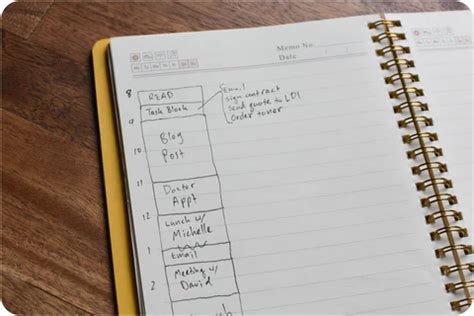 Memo No.
Date
8
READ
Task Block
Email
sign contract
send quote to LDI
Order toner
9
Blog
Post
10
11
Doctor
Appt
12
Lunch w/
Michelle
1
Email
2
Meeting w/
David